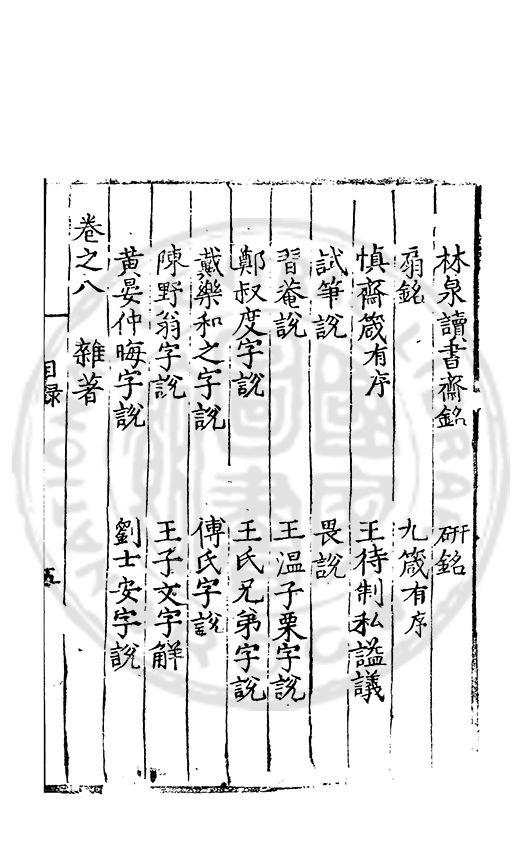 林泉讀書齋銘　硏銘
扇銘　九箴有序
慎齋箴有序　王待制私謚議
試筆說　畏說
習菴說　王溫子栗字說
鄭叔度字說　王氏兄弟字說
戴樂和之字說　傅氏字說
陳野翁字說　王子文字解
黃晏仲晦字說　劉士安字說
卷之八　雜著
目録　五